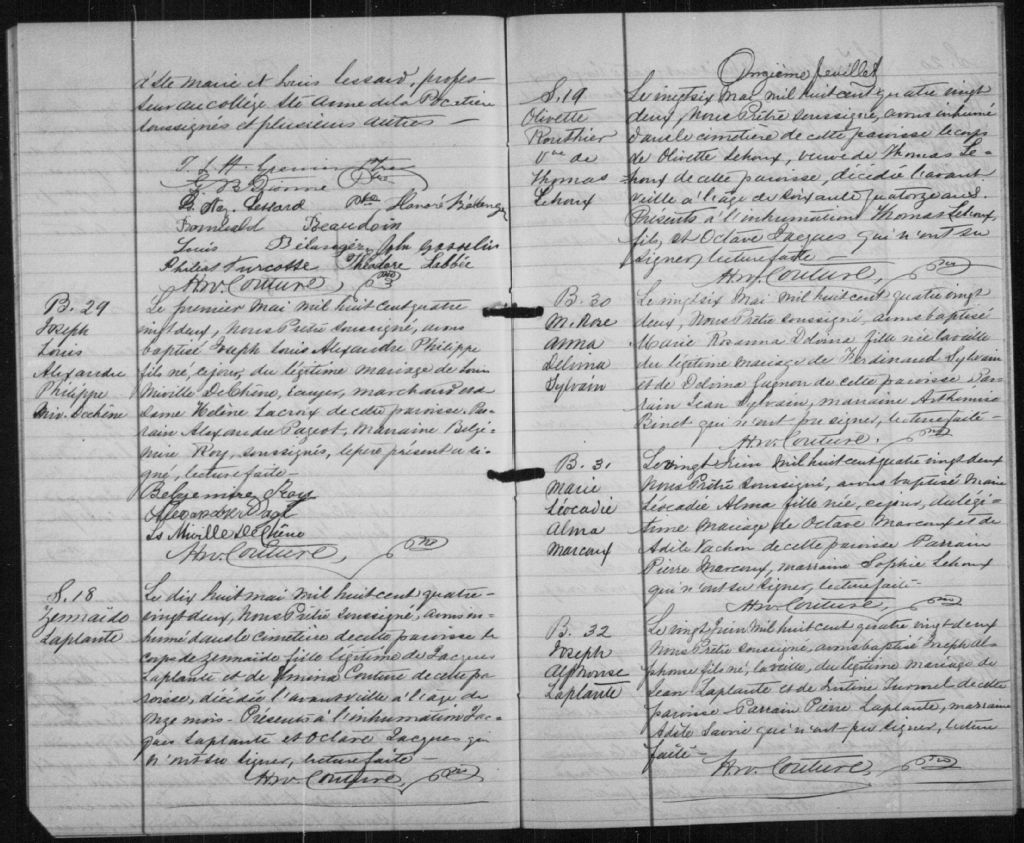 d'Ste Marie et Louis Lessard, profes-
seur au collège Ste Anne de la Pocetière
soussignés et plusieurs autres -
F. X. Lessard Ptre Honoré Bélanger
Beaudoin
Louis Bélanger, John Gosselin
Philias Turcotte Théodore Labbée
Hw. Couture, Ptre
B. 29
Joseph
Louis
Alexandre
Philippe
Miv. Dechène
Le premier Mai mil huit cent quatre
vingt deux, Nous Prêtre soussigné, avons
baptisé Joseph Louis Alexandre Philippe
fils né, ce jour, du légitime mariage de Louis
Miville DeChêne, Ecuyer, marchand et de
dame Hélène Lacroix de cette paroisse. Par-
rain Alexandre Pageot, Marraine Belzé-
mire Roy, soussignés, le père présent a si-
gné, lecture faite -
Belzemire Roy
Alexandre Pagé
Ls Miville DeChêne
Hw. Couture, Ptre
S. 18
Zennaïde
Laplante
Le dix huit mai mil huit cent quatre-
vingt deux, Nous Prêtre soussigné, avons in-
humé dans le cimetière de cette paroisse le
corps de Zennaïde fille légitime de Jacques
Laplante et de Emina Couture de cette pa-
roisse, décédée l'avant veille à l'âge de
onze mois - Présents à l'inhumation Jac-
ques Laplante et Octave Jacques qui
n'ont su signer, lecture faite -
Hw. Couture, Ptre
Onzième feuillet
S. 19
Olivette
Routhier
Vve de
Thomas
Lehoux
Le vingt six Mai mil huit cent quatre vingt
deux, Nous Prêtre soussigné, avons inhumé
dans le cimetière de cette paroisse le corps
de Olivette Lehoux, veuve de Thomas Le-
houx de cette paroisse, décédée l'avant
veille à l'âge de soixante quatorze ans.
Présents à l'inhumation Thomas Lehoux
fils, et Octave Jacques qui n'ont su
signer, lecture faite -
Hw. Couture, Ptre
B. 30
M. Rose
Anna
Délima
Sylvain
Le vingt six Mai mil huit cent quatre vingt
deux, Nous Prêtre soussigné, avons baptisé
Marie Rosanna Delvina fille née la veille
du légitime mariage de Ferdinand Sylvain
et de Delvina Gagnon de cette paroisse Par-
rain Jean Sylvain, marraine Arthémise
Binet qui n'ont pu signer, lecture faite -
Hw. Couture. Ptre
B. 31
Marie
Léocadie
Alma
Marcoux
Le vingt Juin mil huit cent quatre vingt deux
Nous Prêtre soussigné, avons baptisé Marie
Léocadie Alma fille née, ce jour, du légi-
time mariage de Octave Marcoux et de
Adite Vachon de cette paroisse Parrain
Pierre Marcoux, marraine Sophie Lehoux
qui n'ont su signer, lecture faite -
Hw. Couture, Ptre
B. 32
Joseph
Alphonse
Laplante
Le vingt Juin mil huit cent quatre vingt deux
Nous Prêtre soussigné, avons baptisé Joseph Al-
phonse fils né, la veille, du légitime mariage de
Jean Laplante et de Justine Turmel de cette
paroisse Parrain Pierre Laplante, marraine
Adite Savoie qui n'ont pu signer, lecture
faite -
Hw. Couture, Ptre